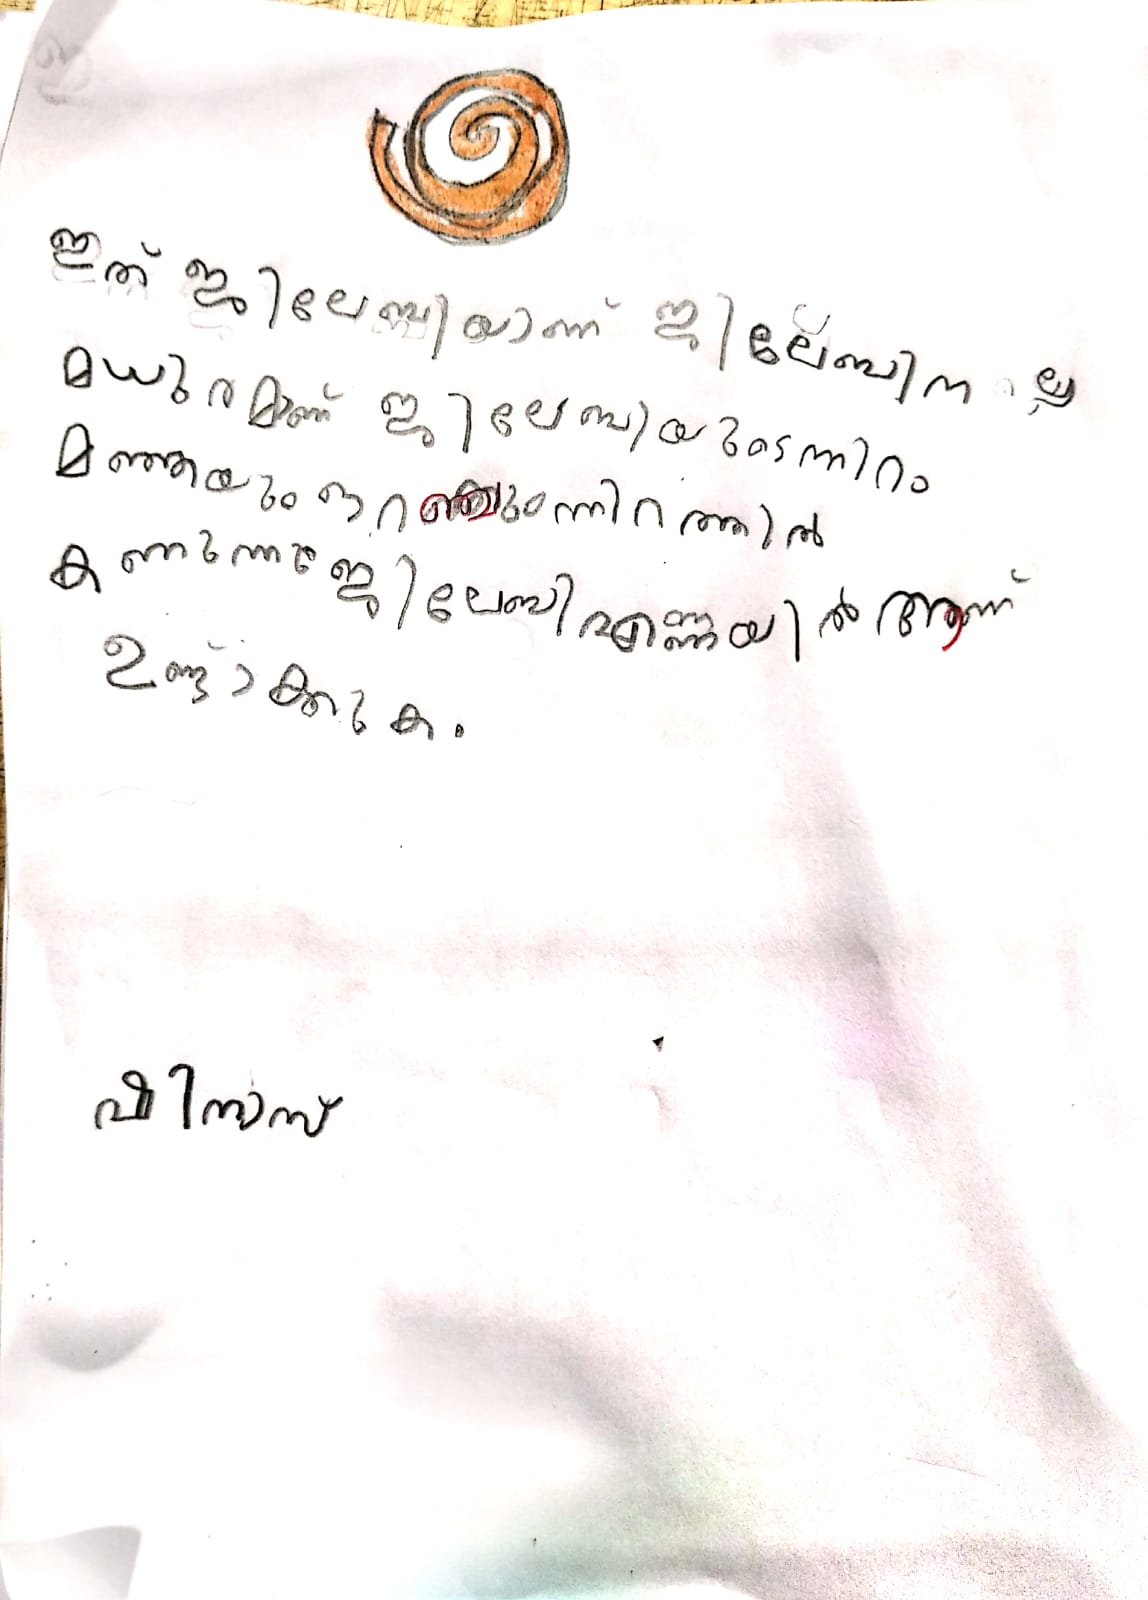 ഇത് ജിലേബിയാണ് ജിലേബിന ല്ല
മധുരമാണ് ജിലേബിയുടെന്നിറം
മഞ്ഞയും ഓറഞ്ചുംന്നിറത്തിൽ
കണുന്ന ജിലേബി എണ്ണയിൽ ആണ്
ഉണ്ടാക്കുക.